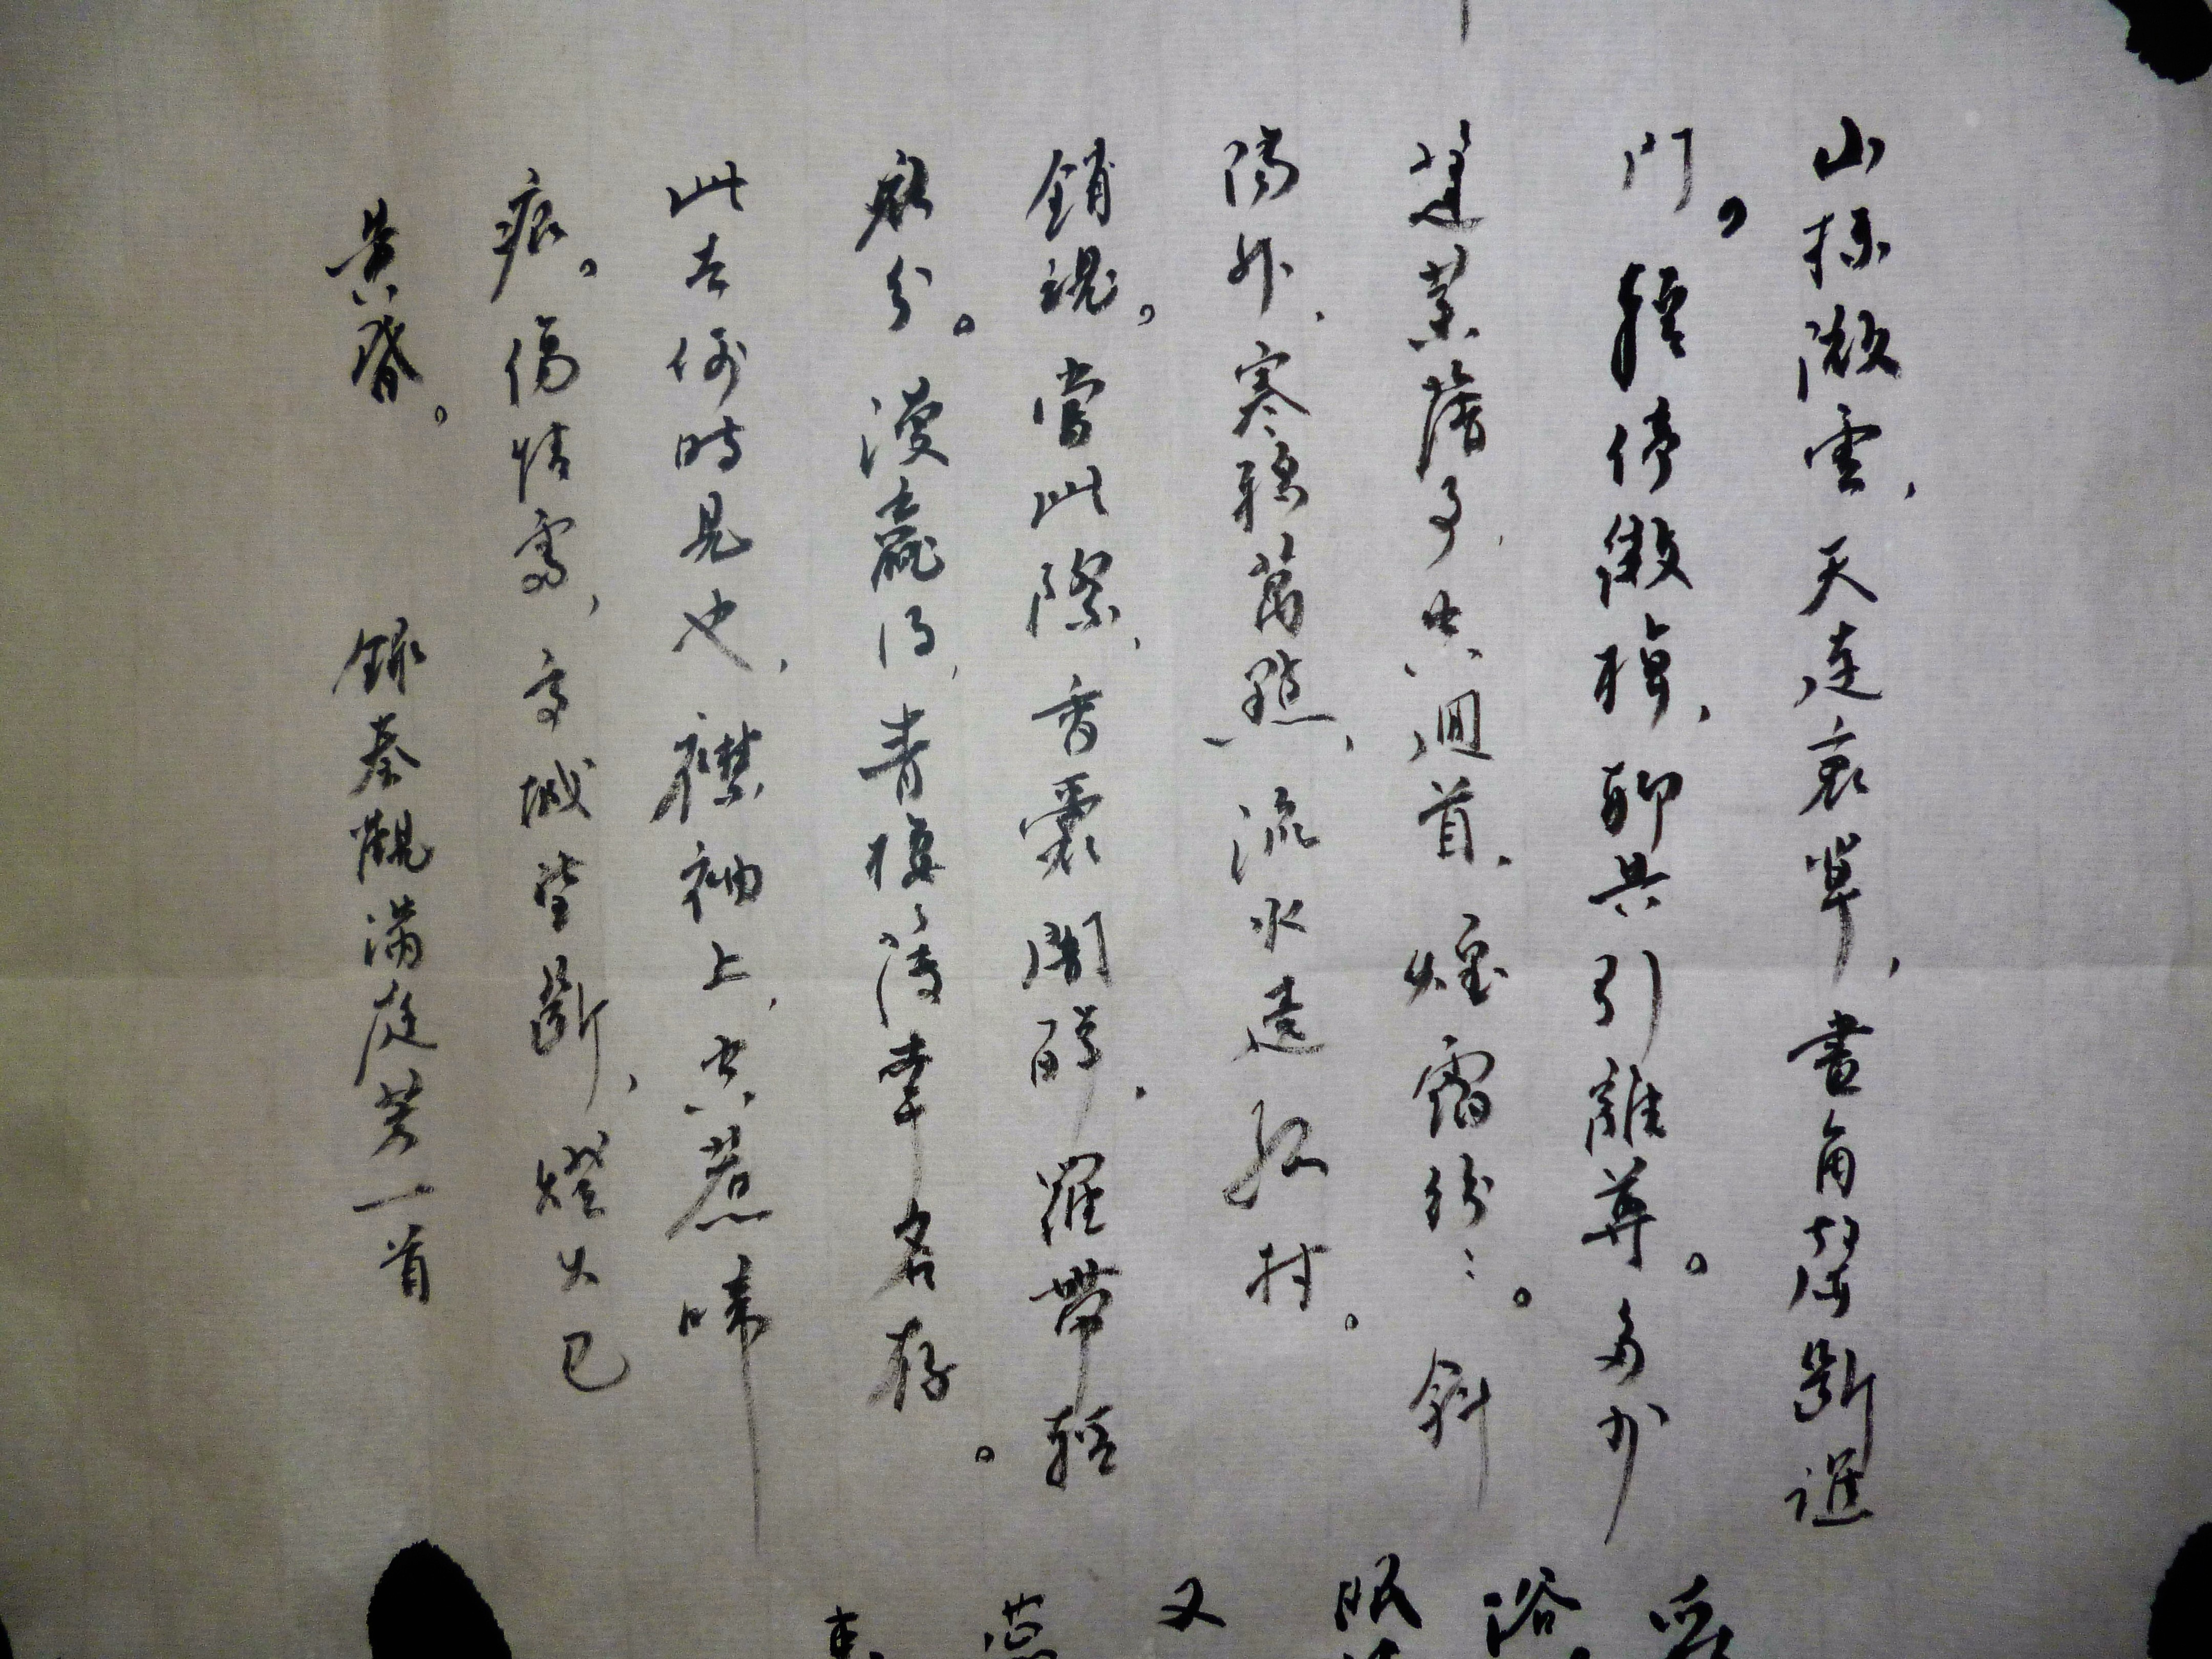 山抹微雲，天連衰草，畫角聲斷譙
門。暫停徵棹，聊共引離尊。多少
蓬萊舊事，空迴首，煙靄紛〻。斜
陽外，寒鴉萬點，流水遶孤村。
銷魂。當此際，香囊暗解，羅帶輕
分。漫贏得，青樓薄倖名存。
此去何時見也，襟袖上，空惹啼
痕。傷情處，高城望斷，燈火已
黃昏。 錄秦觀滿庭芳一首
浴
眠
又
蕊